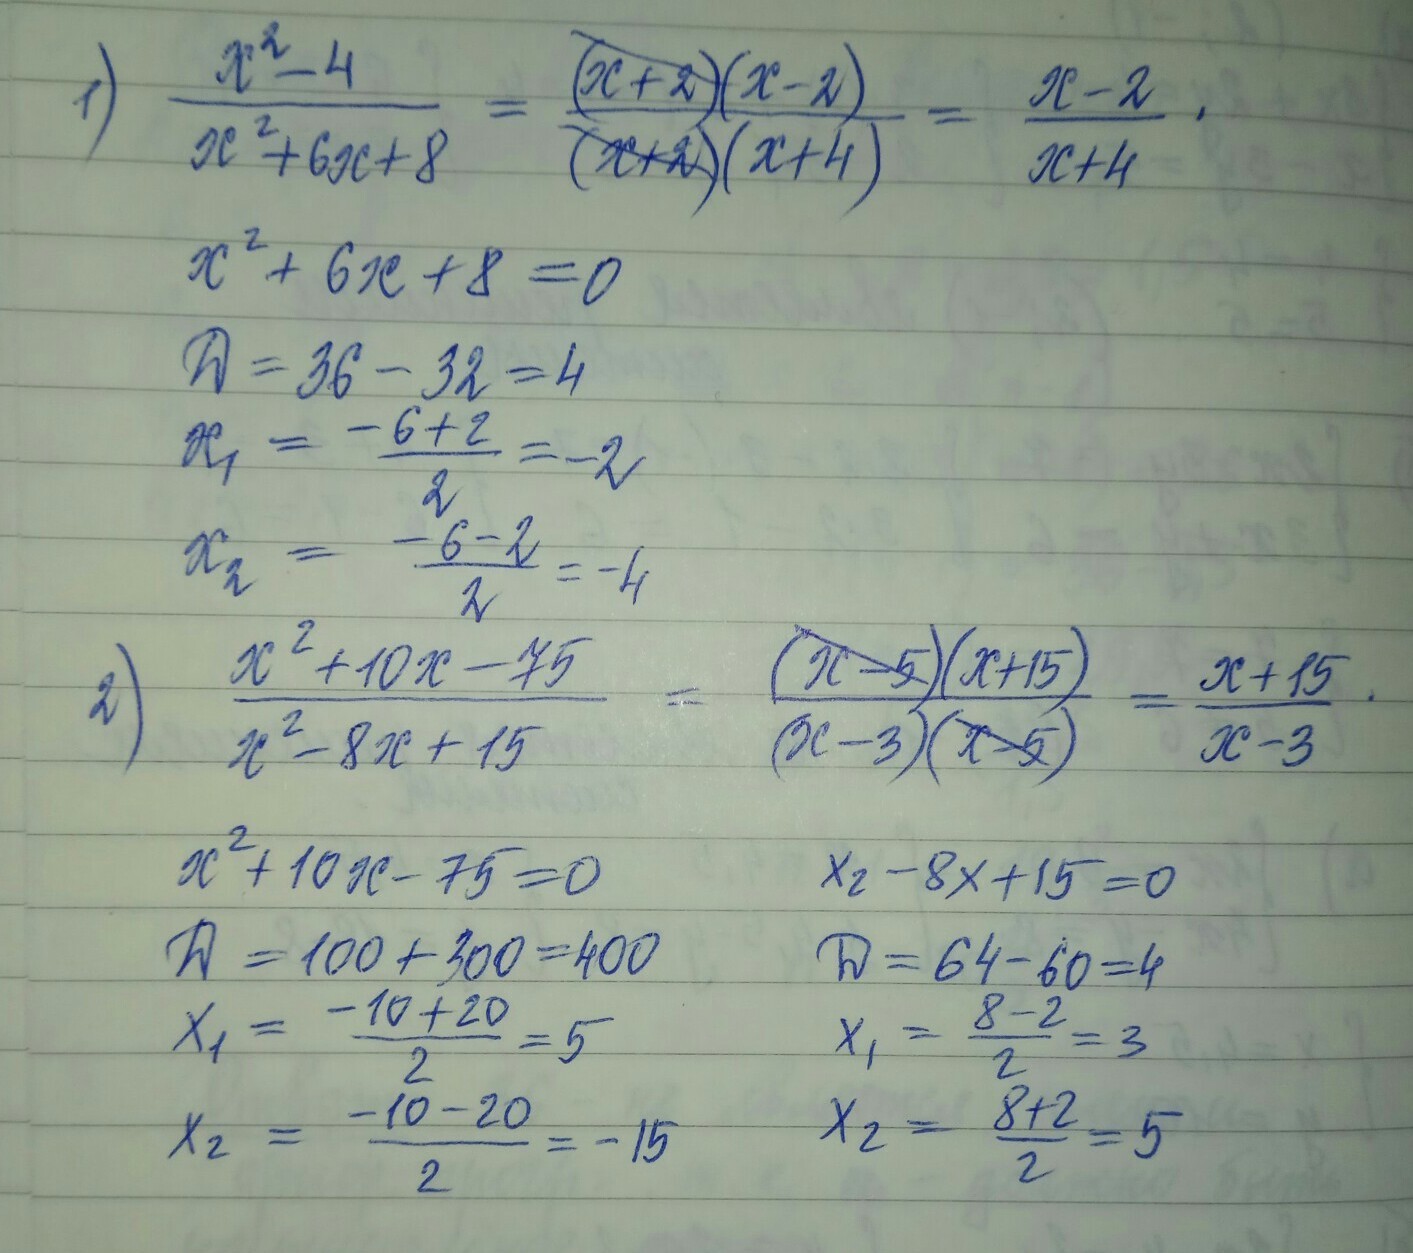 1) x²-4 / x²+6x+8 = (x+2)(x-2) / (x+2)(x+4) = x-2 / x+4 .
x²+6x+8=0
D=36-32=4
x₁ = -6+2 / 2 = -2
x₂ = -6-2 / 2 = -4
2) x²+10x-75 / x²-8x+15 = (x-5)(x+15) / (x-3)(x-5) = x+15 / x-3 .
x²+10x-75=0
D=100+300=400
x₁ = -10+20 / 2 = 5
x₂ = -10-20 / 2 = -15
x₂-8x+15=0
D=64-60=4
x₁ = 8-2 / 2 = 3
x₂ = 8+2 / 2 = 5